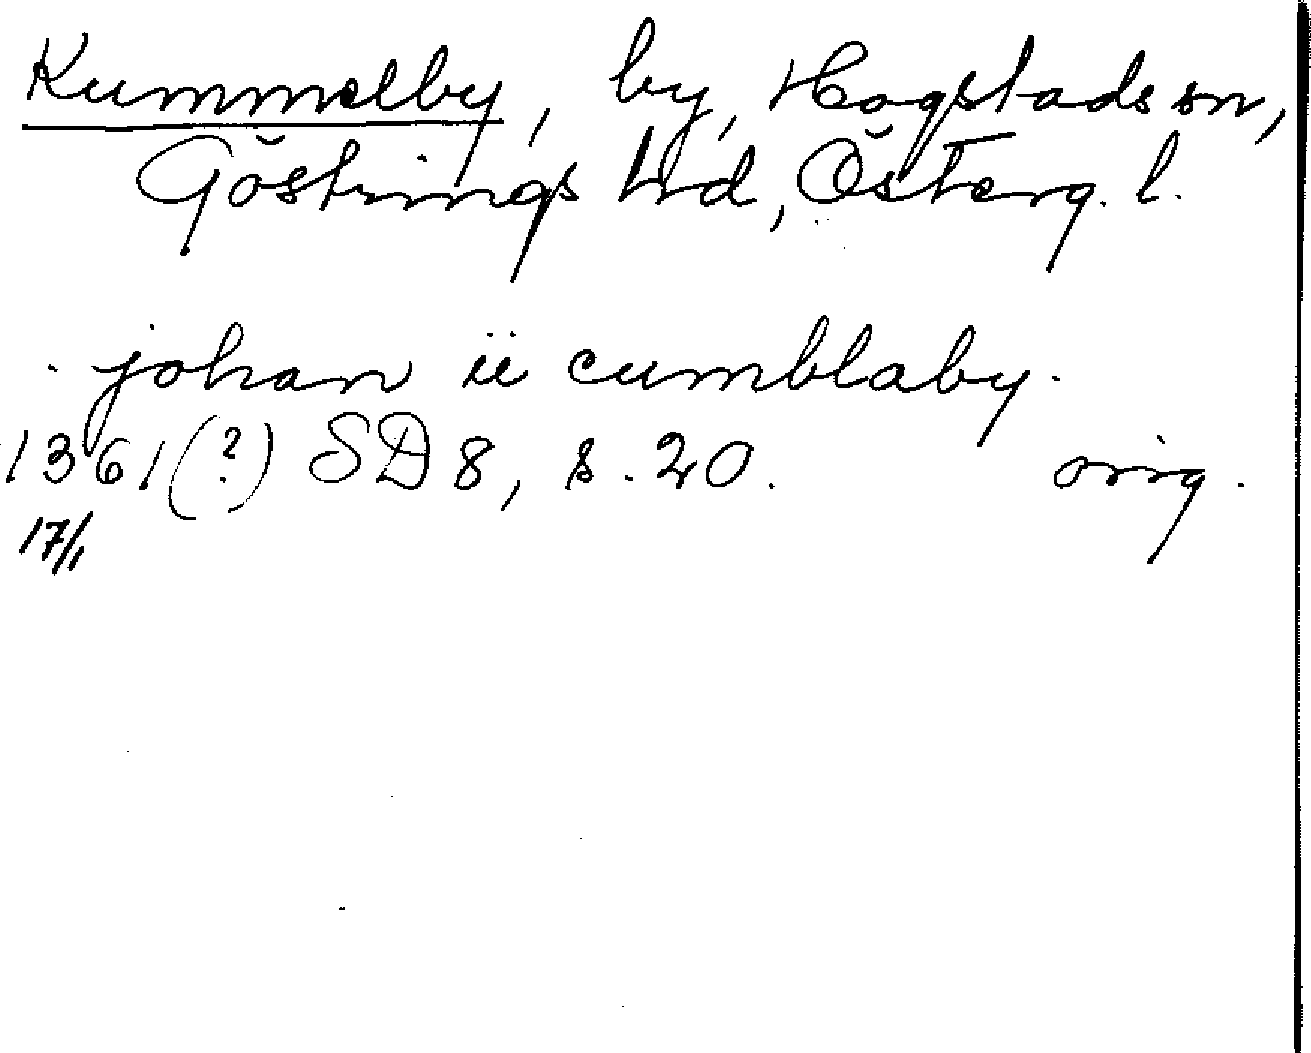 Kummelby, by, Hogstads sn,
Göstrings hd, Österg. l.
johan ii cumblaby.
1361(?) SD 8, s. 20. orig.
17/1